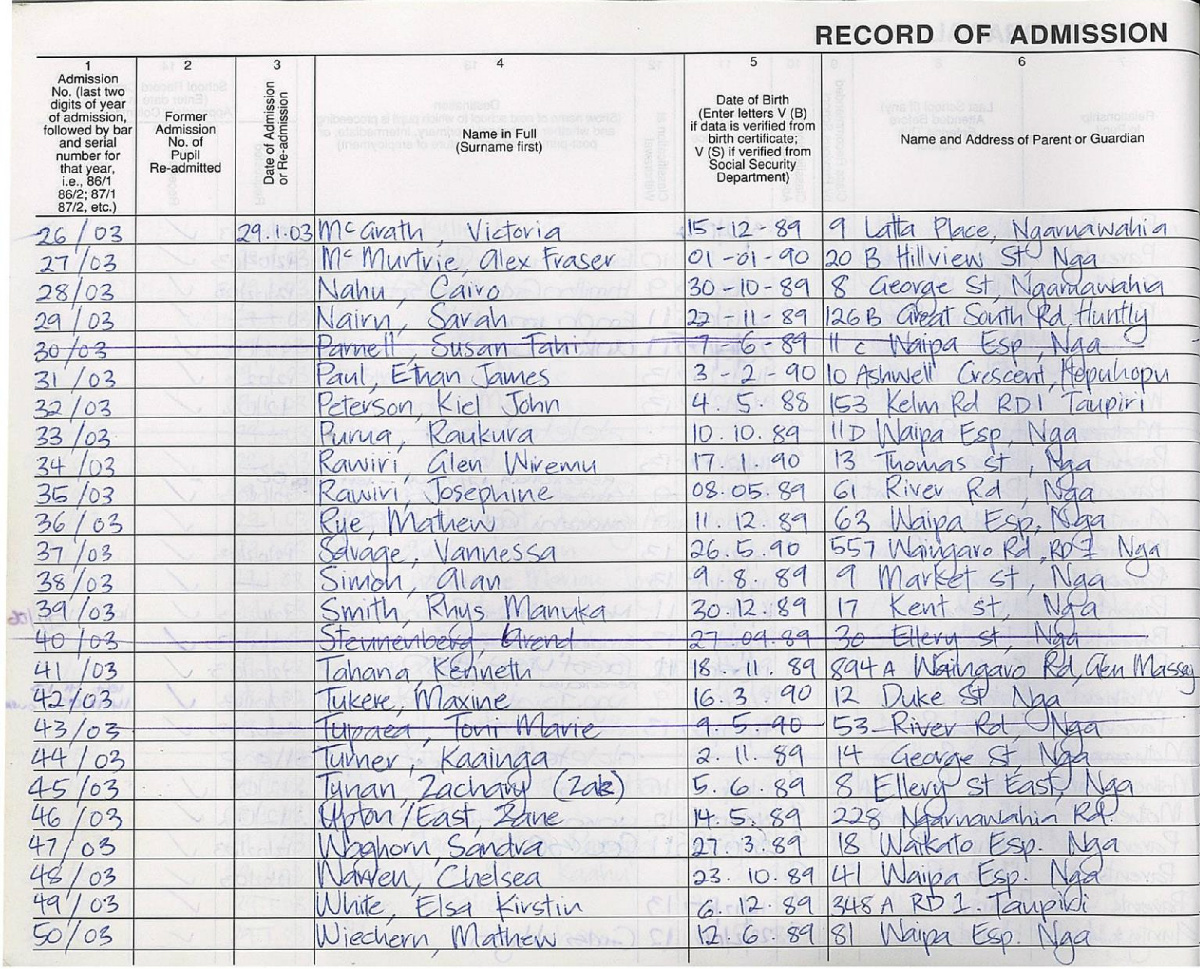 RECORD OF ADMISSION
1 2 3 4 5 6
Admission No. (last two digits of year of admission, followed by bar and serial number for that year, i.e., 86/1 86/2; 87/1 87/2, etc.)
Former Admission No. of Pupil Re-admitted
Date of Admission or Re-admission
Name in Full (Surname first)
Date of Birth (Enter letters V (B) if data is verified from birth certificate; V (S) if verified from Social Security Department)
Name and Address of Parent or Guardian
26/03 29.1.03 McGrath, Victoria 15-12-89 9 Latta Place, Ngaruawahia
27/03 McMurtrie, Alex Fraser 01-01-90 20 B Hillview St Nga
28/03 Nahu, Cairo 30-10-89 8 George St, Ngaruawahia
29/03 Nairn, Sarah 22-11-89 126B Great South Rd, Huntly
30/03 Parnell, Susan Tahi 7-6-89 11 c Waipa Esp, Nga
31/03 Paul, Ethan James 3-2-90 10 Ashwell Crescent, Hopuhopu
32/03 Peterson, Kiel John 4.5.88 153 Kelm Rd RD1 Taupiri
33/03 Purua, Raukura 10.10.89 11D Waipa Esp, Nga
34/03 Rawiri, Glen Wiremu 17.1.90 13 Thomas St, Nga
35/03 Rawiri, Josephine 08.05.89 61 River Rd, Nga
36/03 Rye, Mathew 11.12.89 63 Waipa Esp, Nga
37/03 Savage, Vannessa 26.5.90 557 Waingaro Rd, RD1 Nga
38/03 Simon, Alan 9.8.89 9 Market St, Nga
39/03 Smith, Rhys Manuka 30.12.89 17 Kent St, Nga
40/03 Steunenberg, Arend 27.09.89 30 Ellery St, Nga
41/03 Tahana, Kenneth 18.11.89 894 A Waingaro Rd, Glen Massey
42/03 Tukere, Maxine 16.3.90 12 Duke St Nga
43/03 Tupaea, Toni Marie 9.5.90 53 River Rd Nga
44/03 Turner, Kaainga 2.11.89 14 George St Nga
45/03 Tynan, Zachary (Zak) 5.6.89 8 Ellery St East, Nga
46/03 Upton/East, Zane 14.5.89 228 Ngaruawahia Rd.
47/03 Waghorn, Sandra 27.3.89 18 Waikato Esp. Nga
48/03 Warren, Chelsea 23.10.89 41 Waipa Esp. Nga
49/03 White, Elsa Kirstin 6.12.89 348 A RD 1. Taupiri
50/03 Wiechern, Mathew 12.6.89 81 Waipa Esp. Nga